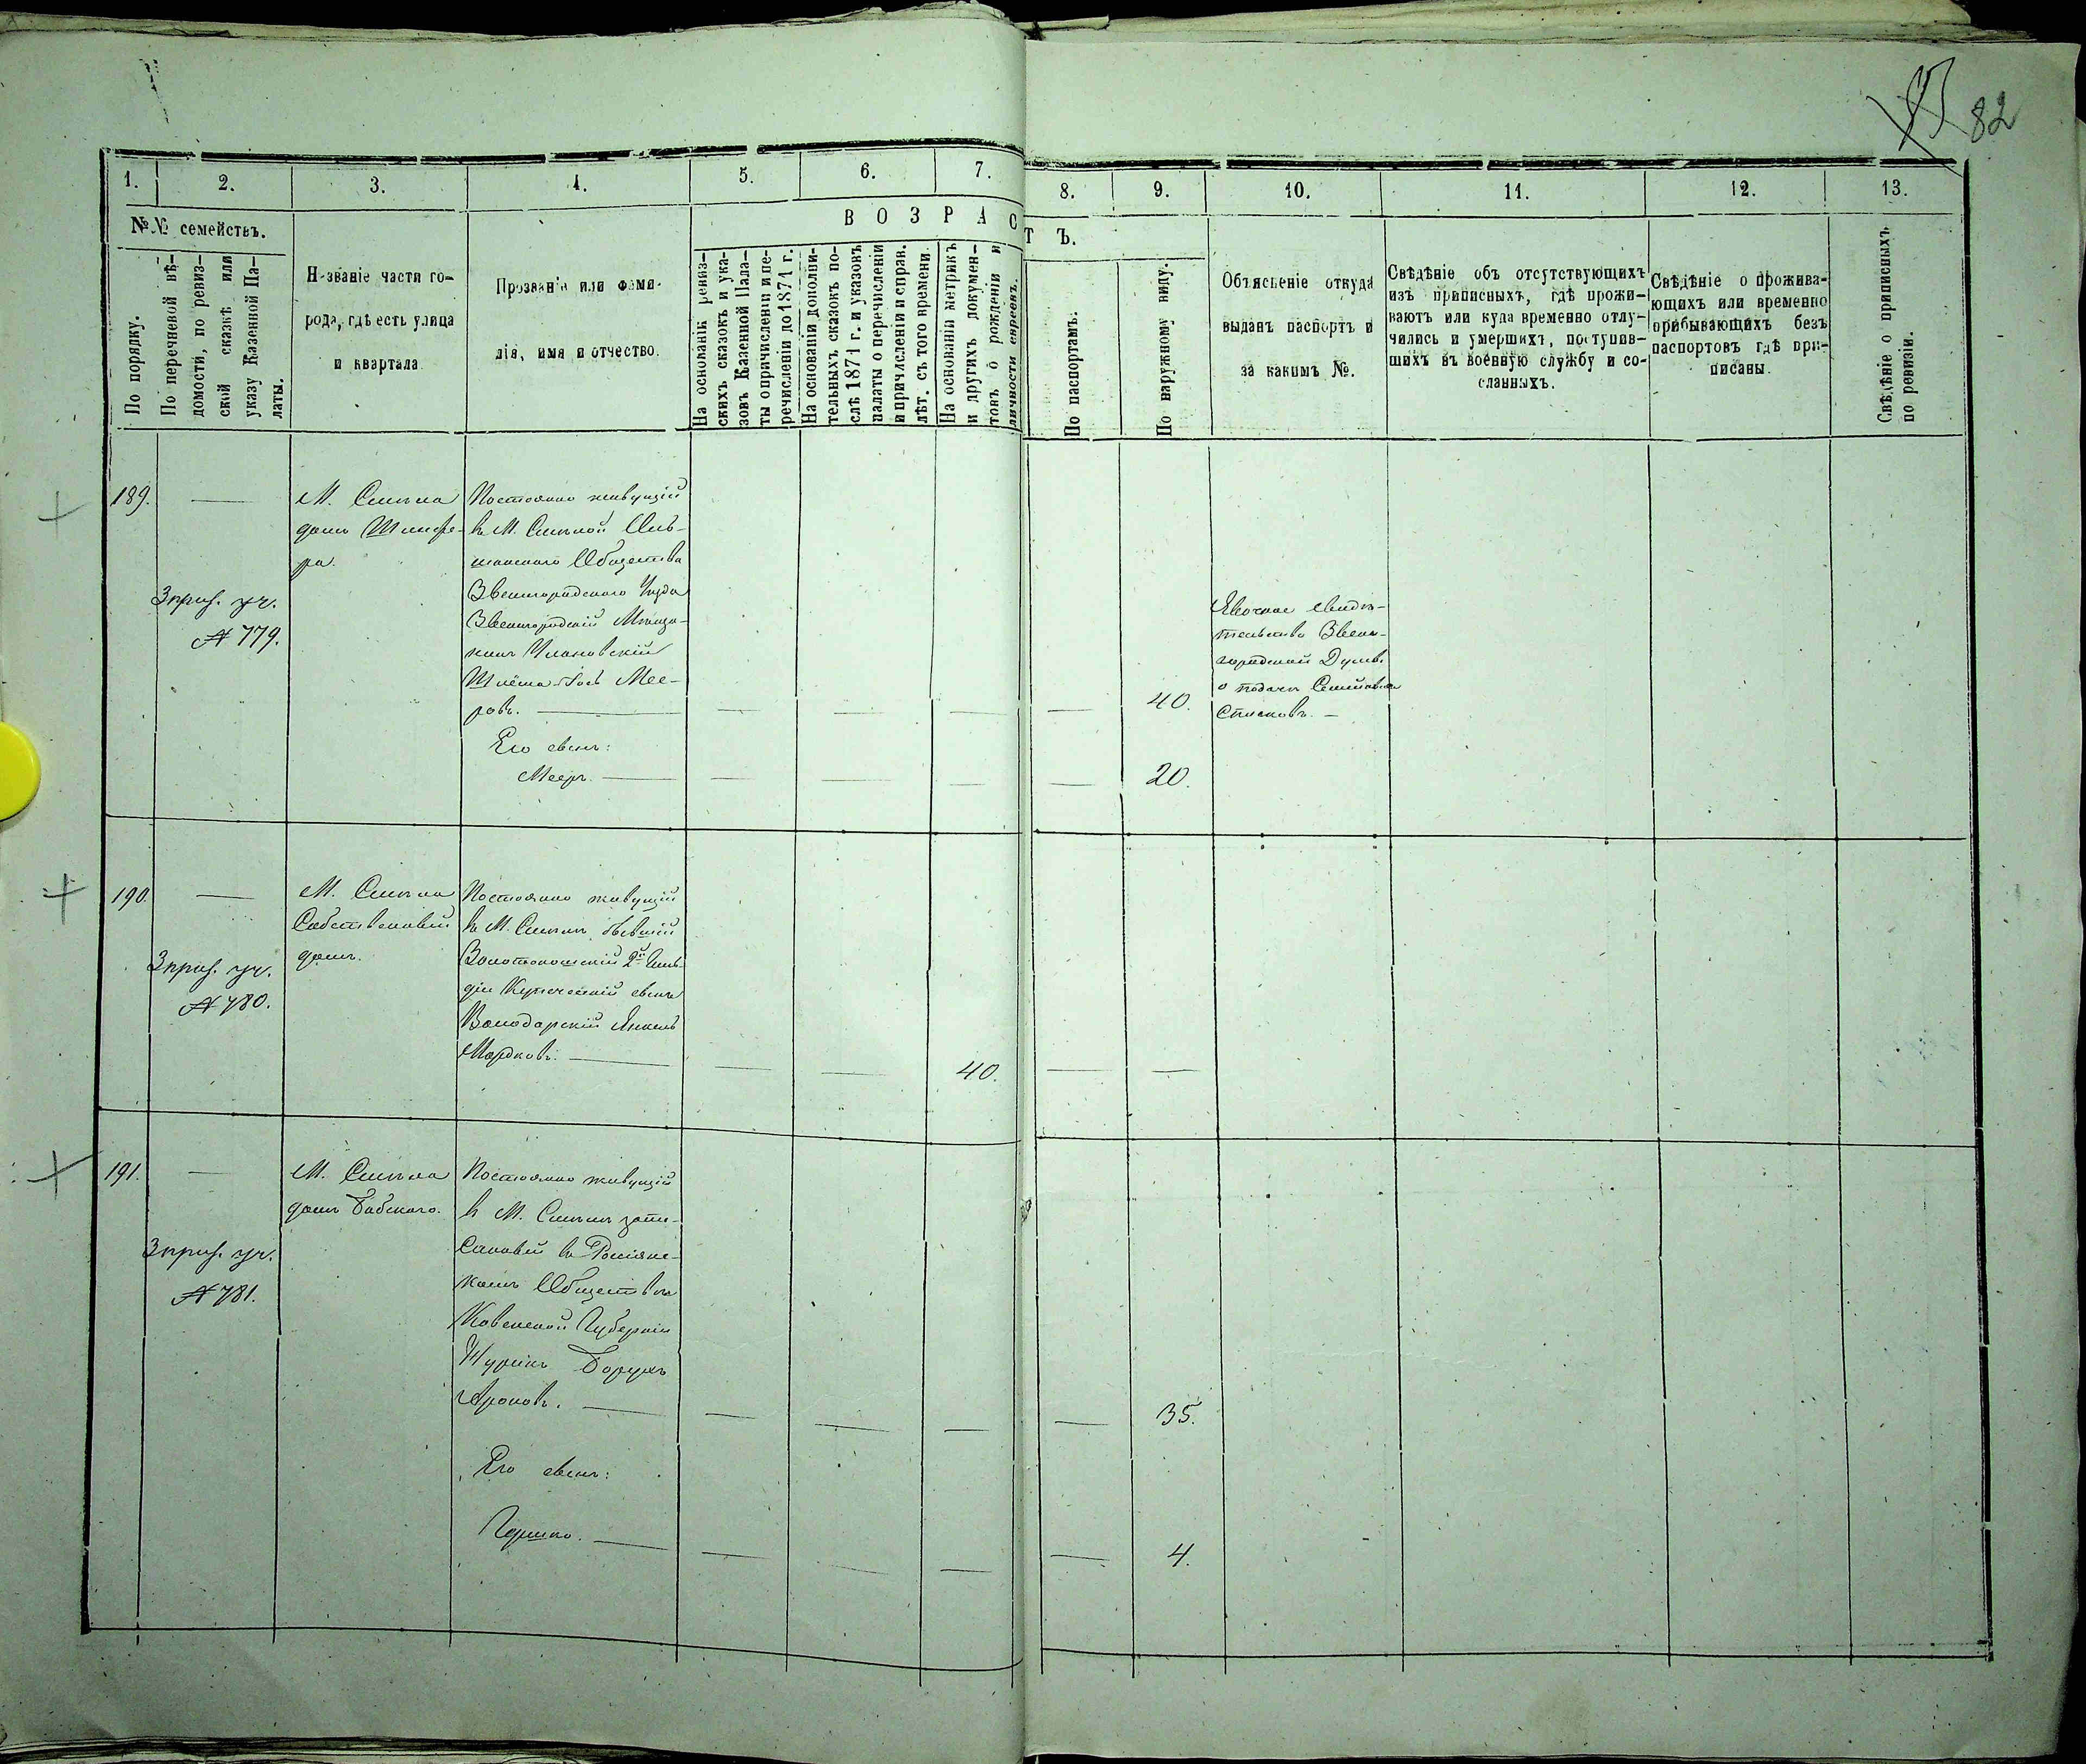 82
1.
2.
3.
4.
5.
6.
7.
8.
9.
10.
11.
12.
13.
№№ семействъ.
ВОЗРАС
ТЪ.
По порядку.
По перечневой вѣ-
домости, по ревиз-
ской сказкѣ или
указу Казенной Па-
латы.
Названіе части го-
рода, гдѣ есть улица
и квартала
Прозваніе или фами-
лія, имя и отчество.
На основаніи ревиз-
скихъ сказокъ и ука-
зовъ Казенной Пала-
ты о причисленіи и пе-
речисленіи до 1871 г.
На основаніи дополни-
тельныхъ сказокъ по-
слѣ 1871 г. и указовъ
палаты о перечисленіи
и причисленіи и справ.
лѣт. съ того времени.
На основаніи метрикъ
и другихъ докумен-
товъ о рожденіи и
личности евреевъ.
По паспортамъ.
По наружному виду.
Объясненіе откуда
выданъ паспортъ и
за какимъ №.
Свѣдѣніе объ отсутствующихъ
изъ приписныхъ, гдѣ прожи-
ваютъ или куда временно отлу-
чились и умершихъ, поступив-
шихъ въ военную службу и со-
сланныхъ.
Свѣдѣніе о прожива-
ющихъ или временно
прибывающихъ безъ
паспортовъ гдѣ при-
писаны.
Свѣдѣніе о приписныхъ
по ревизіи.
189.
3 приз. уч.
№ 779.
М. Смѣла
домъ Шмифе-
ра.
Постоянно живущій
въ М. Смѣлой Оль-
шанскаго Общества
Звенигородскаго Уѣзда
Звенигородскій Мѣща-
нинъ Улановскій
Шлёма-Іось Мее-
ровъ.
40.
Явочное свидѣ-
тельство Звени-
городской Думы
о подачѣ Семейныхъ
Списковъ. —
Его сынъ:
Мееръ.
20.
190.
3 приз. уч.
№ 780.
М. Смѣла
Собственный
домъ.
Постоянно живущій
въ М. Смѣлѣ бывшій
Золотоношскій 2й Гиль-
діи Купеческій сынъ
Володарскій Янкель
Мордковъ.
40.
191.
3 приз. уч.
№ 781.
М. Смѣла
домъ Бабскаго.
Постоянно живущій
въ М. Смѣлѣ запи-
санный въ
комъ Обществѣ
Ковенской Губерніи
Борухъ
Ароновъ.
35.
Его сынъ:
Гершко.
4.